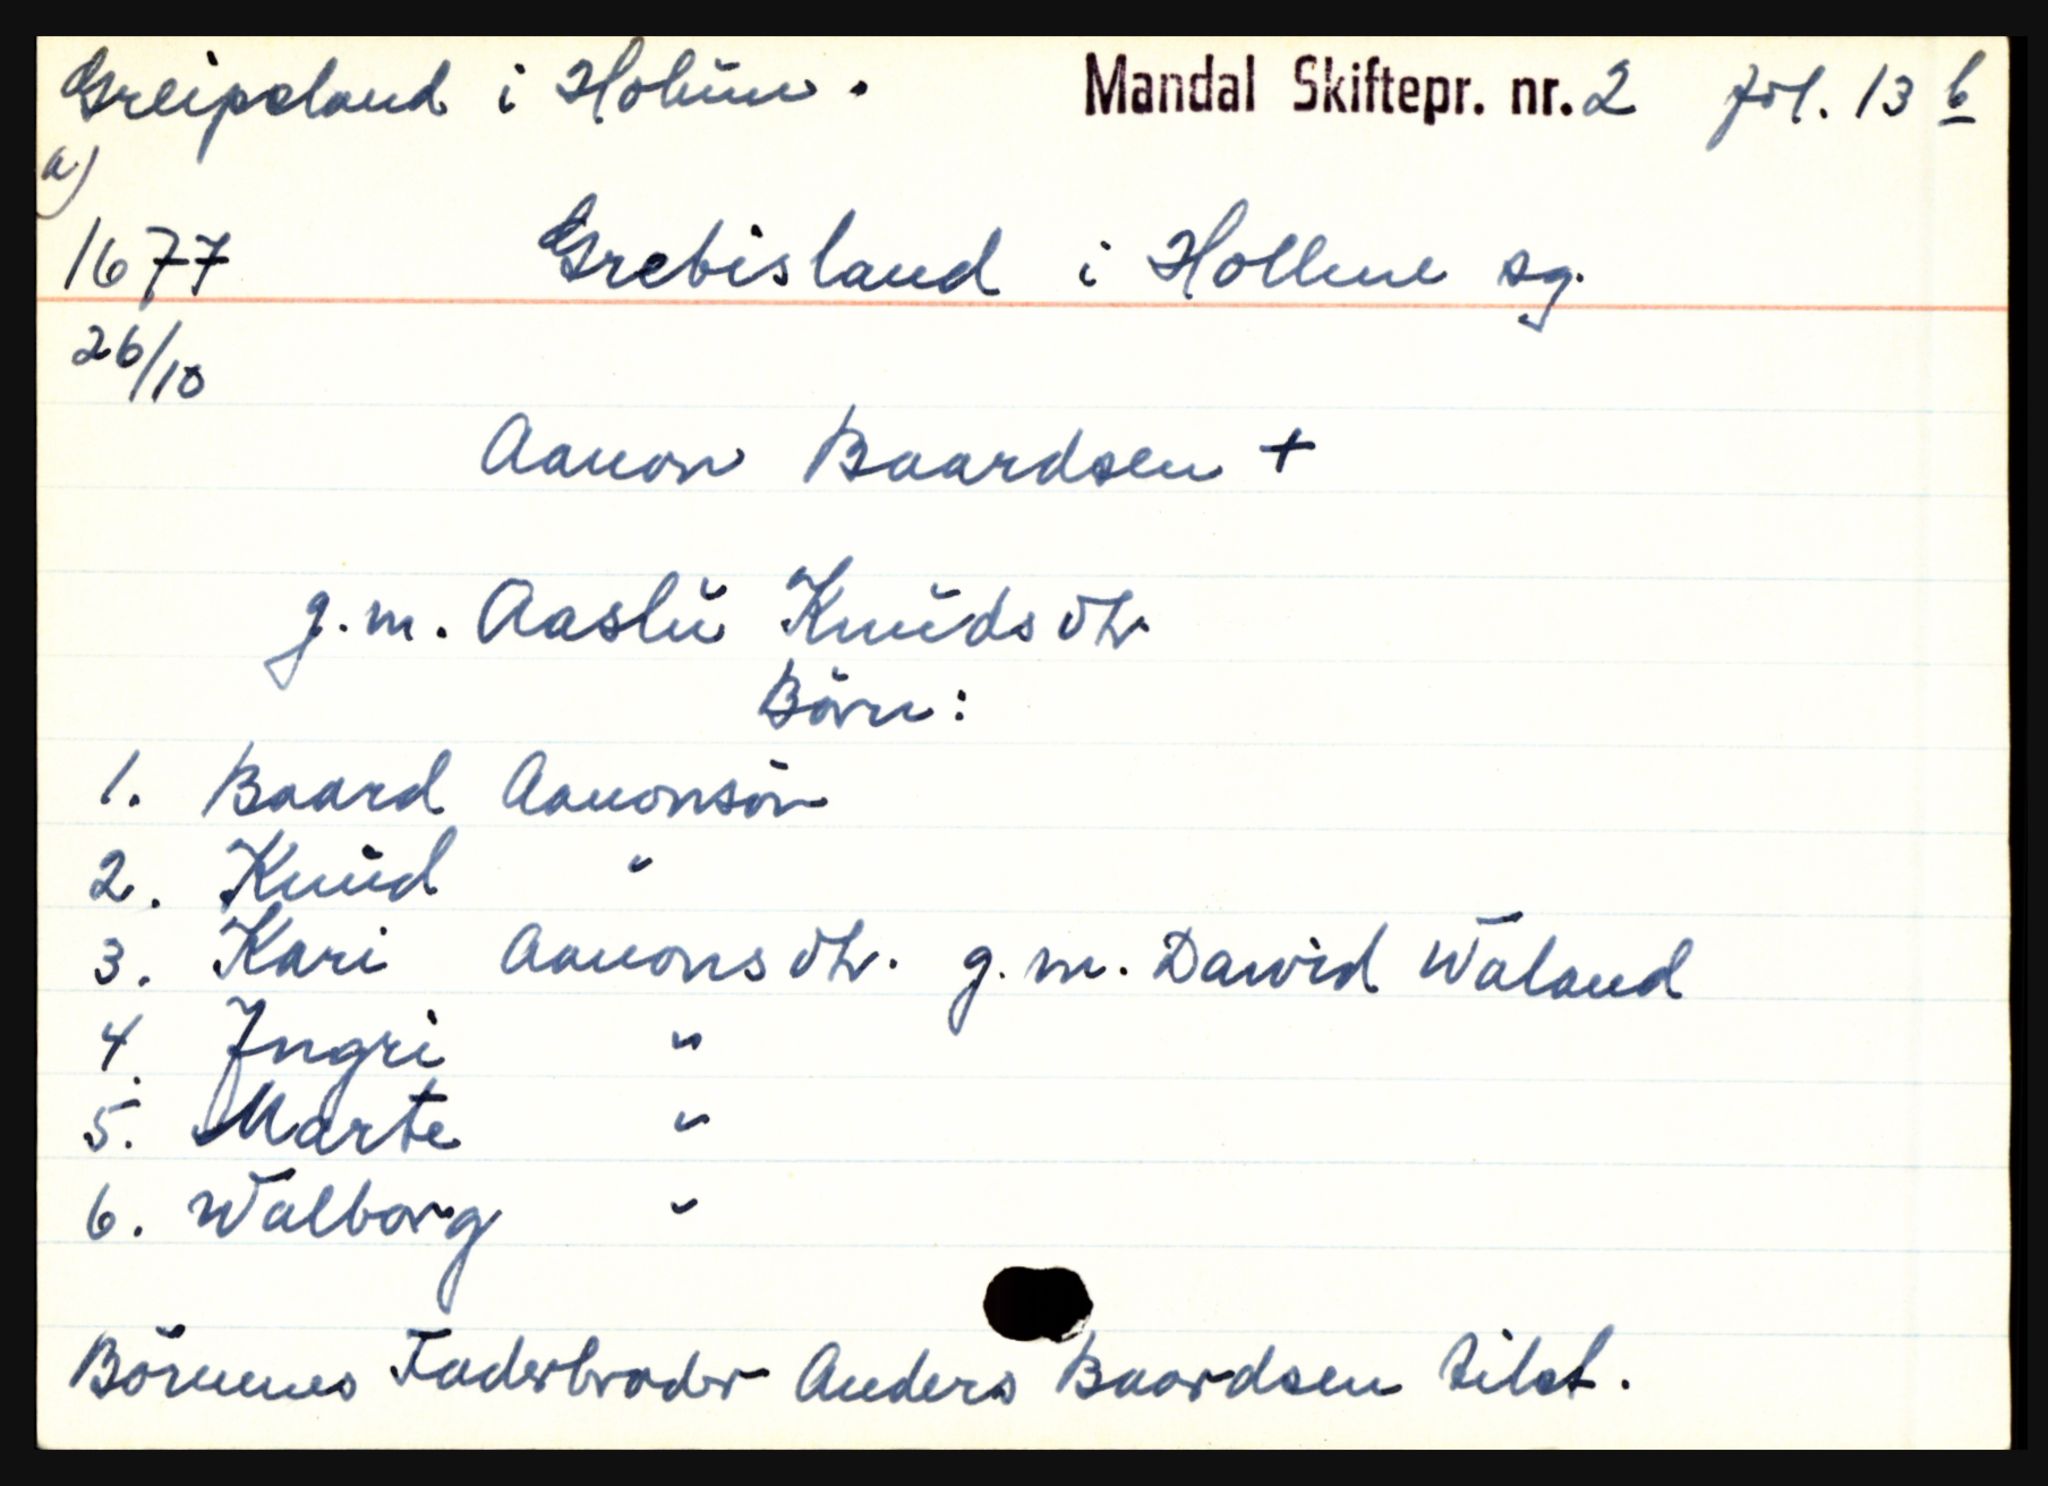 Greipsland i Holum. Mandal Skiftepr. nr. 2 fol. 13 b
a)
1677 Grebisland i Hollme sg.
26/10
Aanon Baardsen +
g.m. Aaslu Knudsdtr
Börn:
1. Baard Aanonsön
2. Knud "
3. Kari Aanonsdtr. g.m. Dawid Waland
4. Ingri "
5. Marte "
6. Walborg "
Börnenes Faderbroder Anders Baardsen tilst.